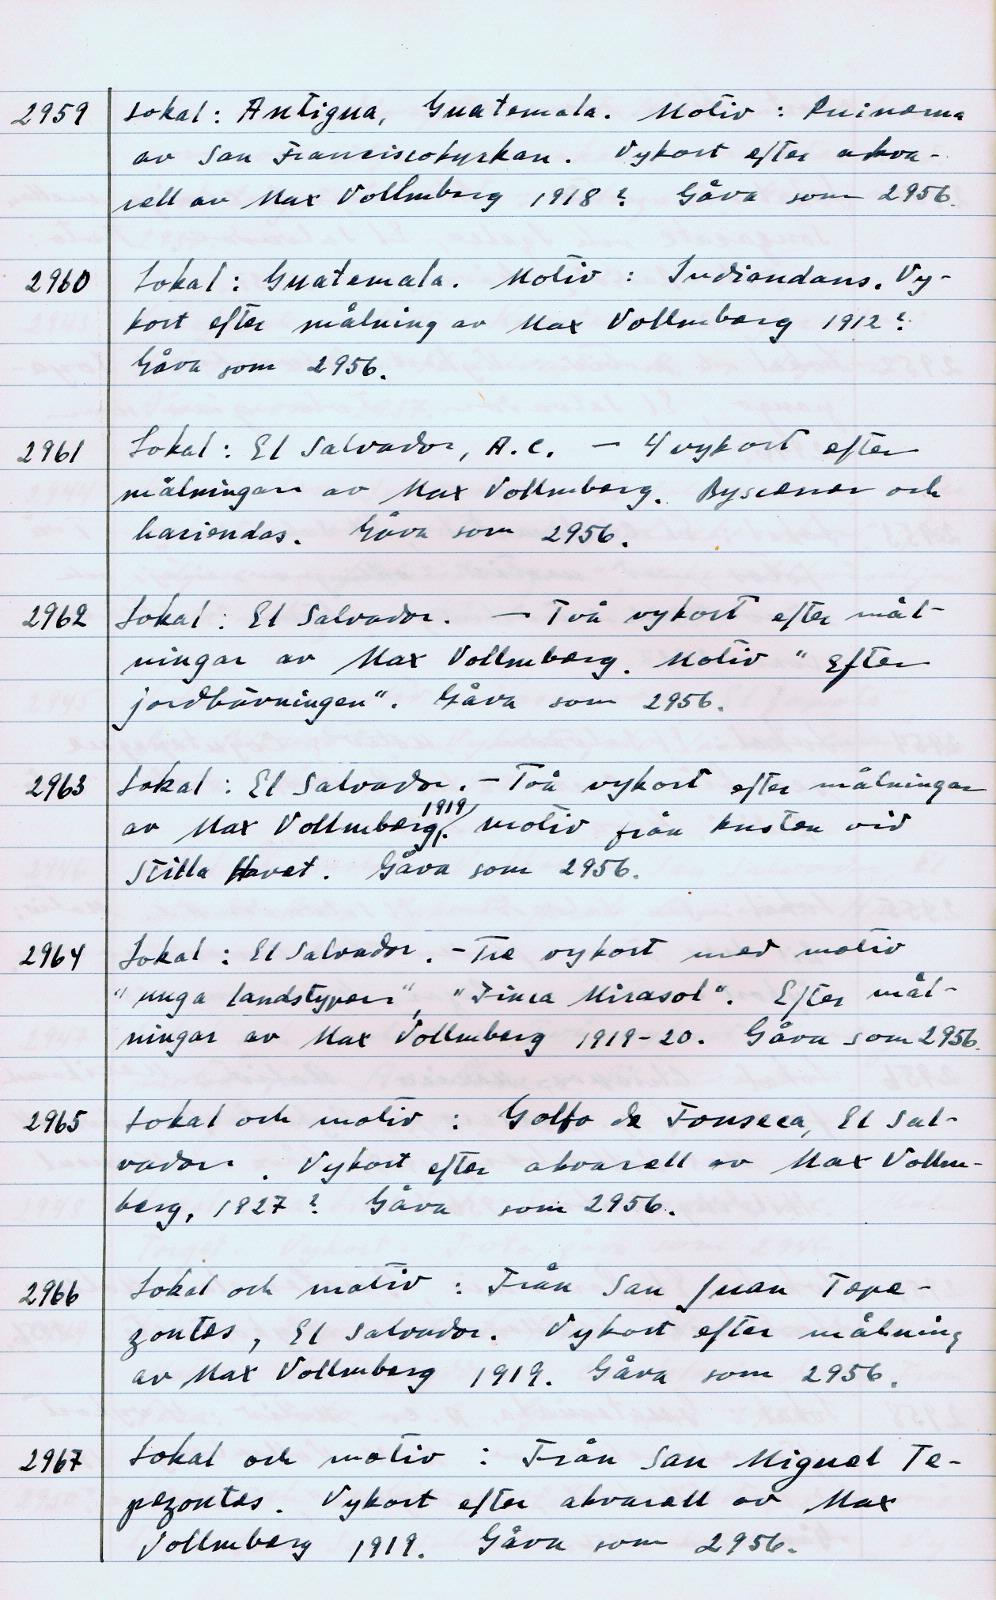 2959 Lokal: Antigua, Guatemala. Motiv: Ruinerna
av San Franciscokyrkan. Vykort efter akva-
rell av Max Vollmberg 1918? Gåva som 2956.
2960 Lokal: Guatemala. Motiv: Indiandans. Vy-
kort efter målning av Max Vollmberg 1912?
Gåva som 2956.
2961 Lokal: El Salvador, A.C. — 4 vykort efter
målningar av Max Vollmberg. Byscener och
haciendas. Gåva som 2956.
2962 Lokal: El Salvador. — Två vykort efter mål-
ningar av Max Vollmberg. Motiv "Efter
jordbävningen". Gåva som 2956.
2963 Lokal: El Salvador. — Två vykort efter målningar
av Max Vollmberg 1919. motiv från kusten vid
Stilla Havet. Gåva som 2956.
2964 Lokal: El Salvador. — Tre vykort med motiv
"unga landstyper", "Finca Mirasol". Efter mål-
ningar av Max Vollmberg 1919-20. Gåva som 2956.
2965 Lokal och motiv: Golfo de Fonseca, El Sal-
vador. Vykort efter akvarell av Max Vollm-
berg, 1927? Gåva som 2956.
2966 Lokal och motiv: Från San Juan Tepe-
zontes, El Salvador. Vykort efter målning
av Max Vollmberg 1919. Gåva som 2956.
2967 Lokal och motiv: Från San Miguel Te-
pezontes. Vykort efter akvarell av Max
Vollmberg 1919. Gåva som 2956.